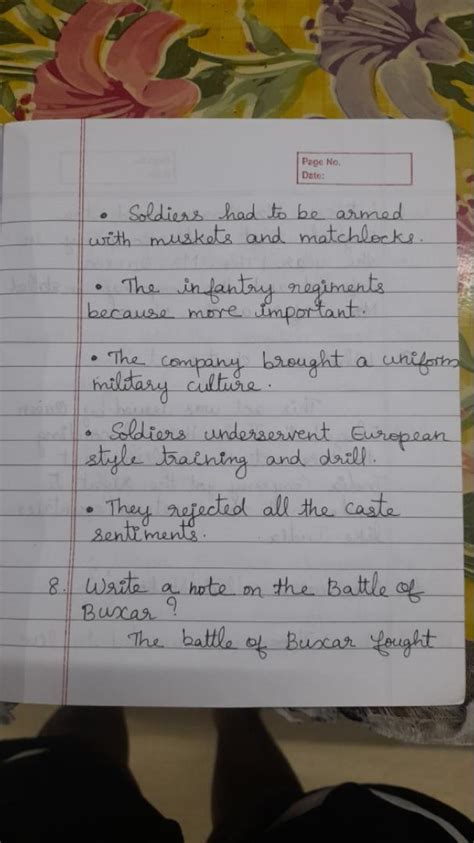 Page No.
Date:
• Soldiers had to be armed
with muskets and matchlocks.
• The infantry regiments
because more important.
• The company brought a uniform
military culture.
• Soldiers underservent European
style training and drill.
• They rejected all the caste
sentiments.
8. Write a note on the Battle of
Buxar?
The battle of Buxar fought